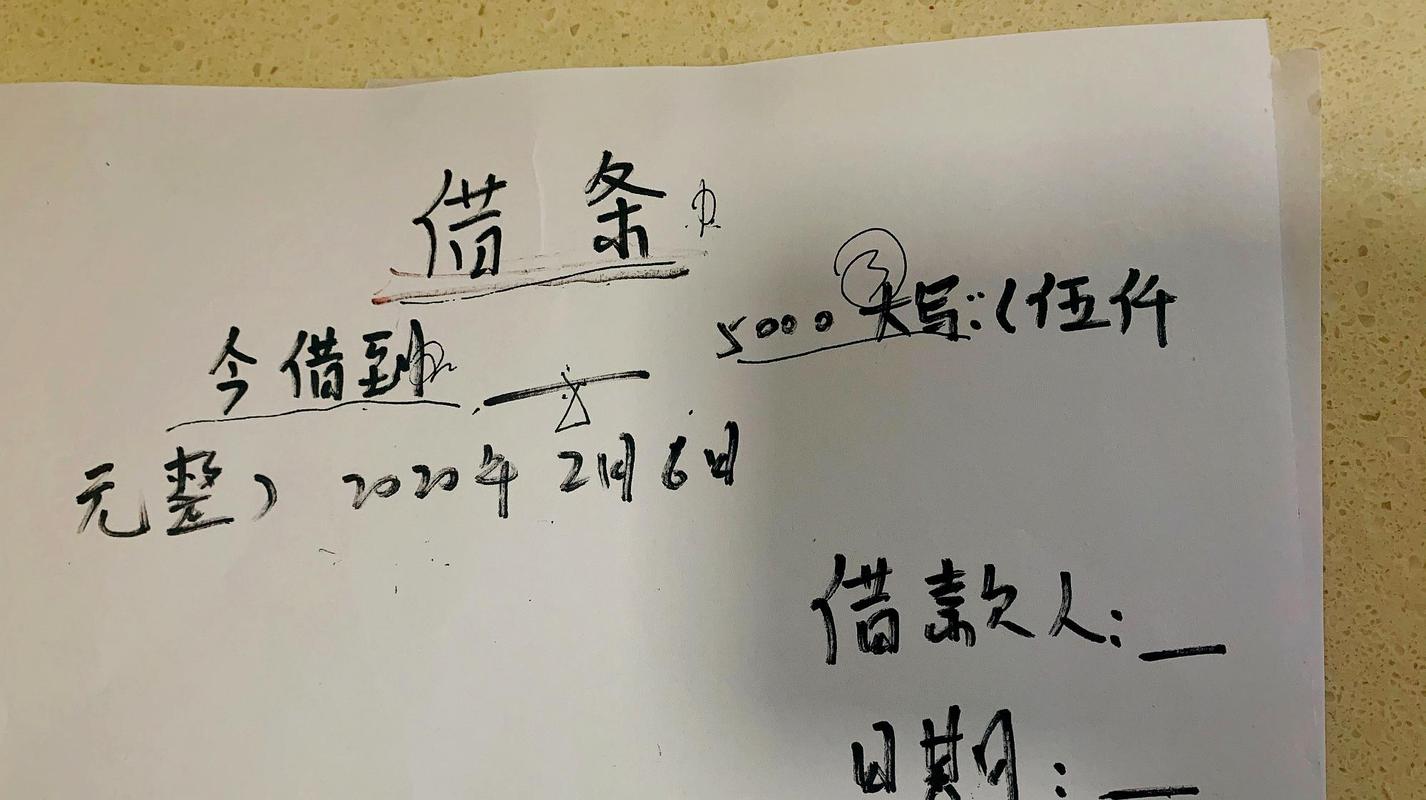 借条 ①
今借到② ___ 5000 大写:(伍仟 ③
元整) 2020年2月6日
借款人:__
日期:__